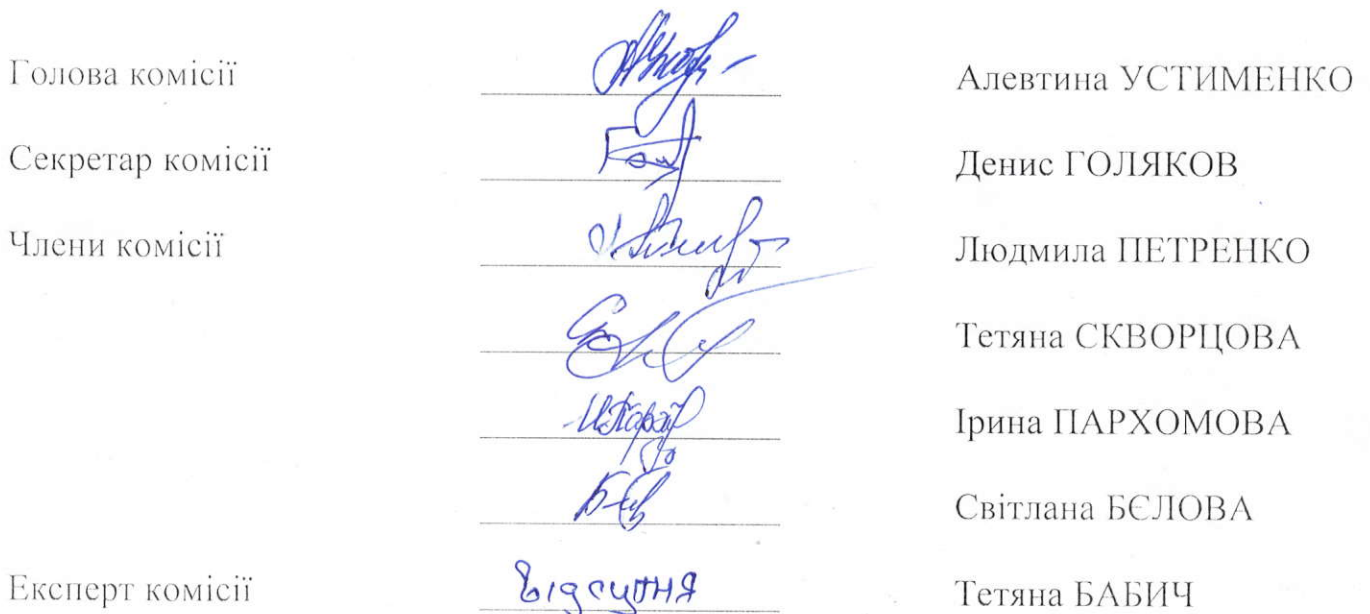 Голова комісії Алевтина УСТИМЕНКО
Секретар комісії Денис ГОЛЯКОВ
Члени комісії Людмила ПЕТРЕНКО
Тетяна СКВОРЦОВА
Ірина ПАРХОМОВА
Світлана БЄЛОВА
Експерт комісії відсутня Тетяна БАБИЧ